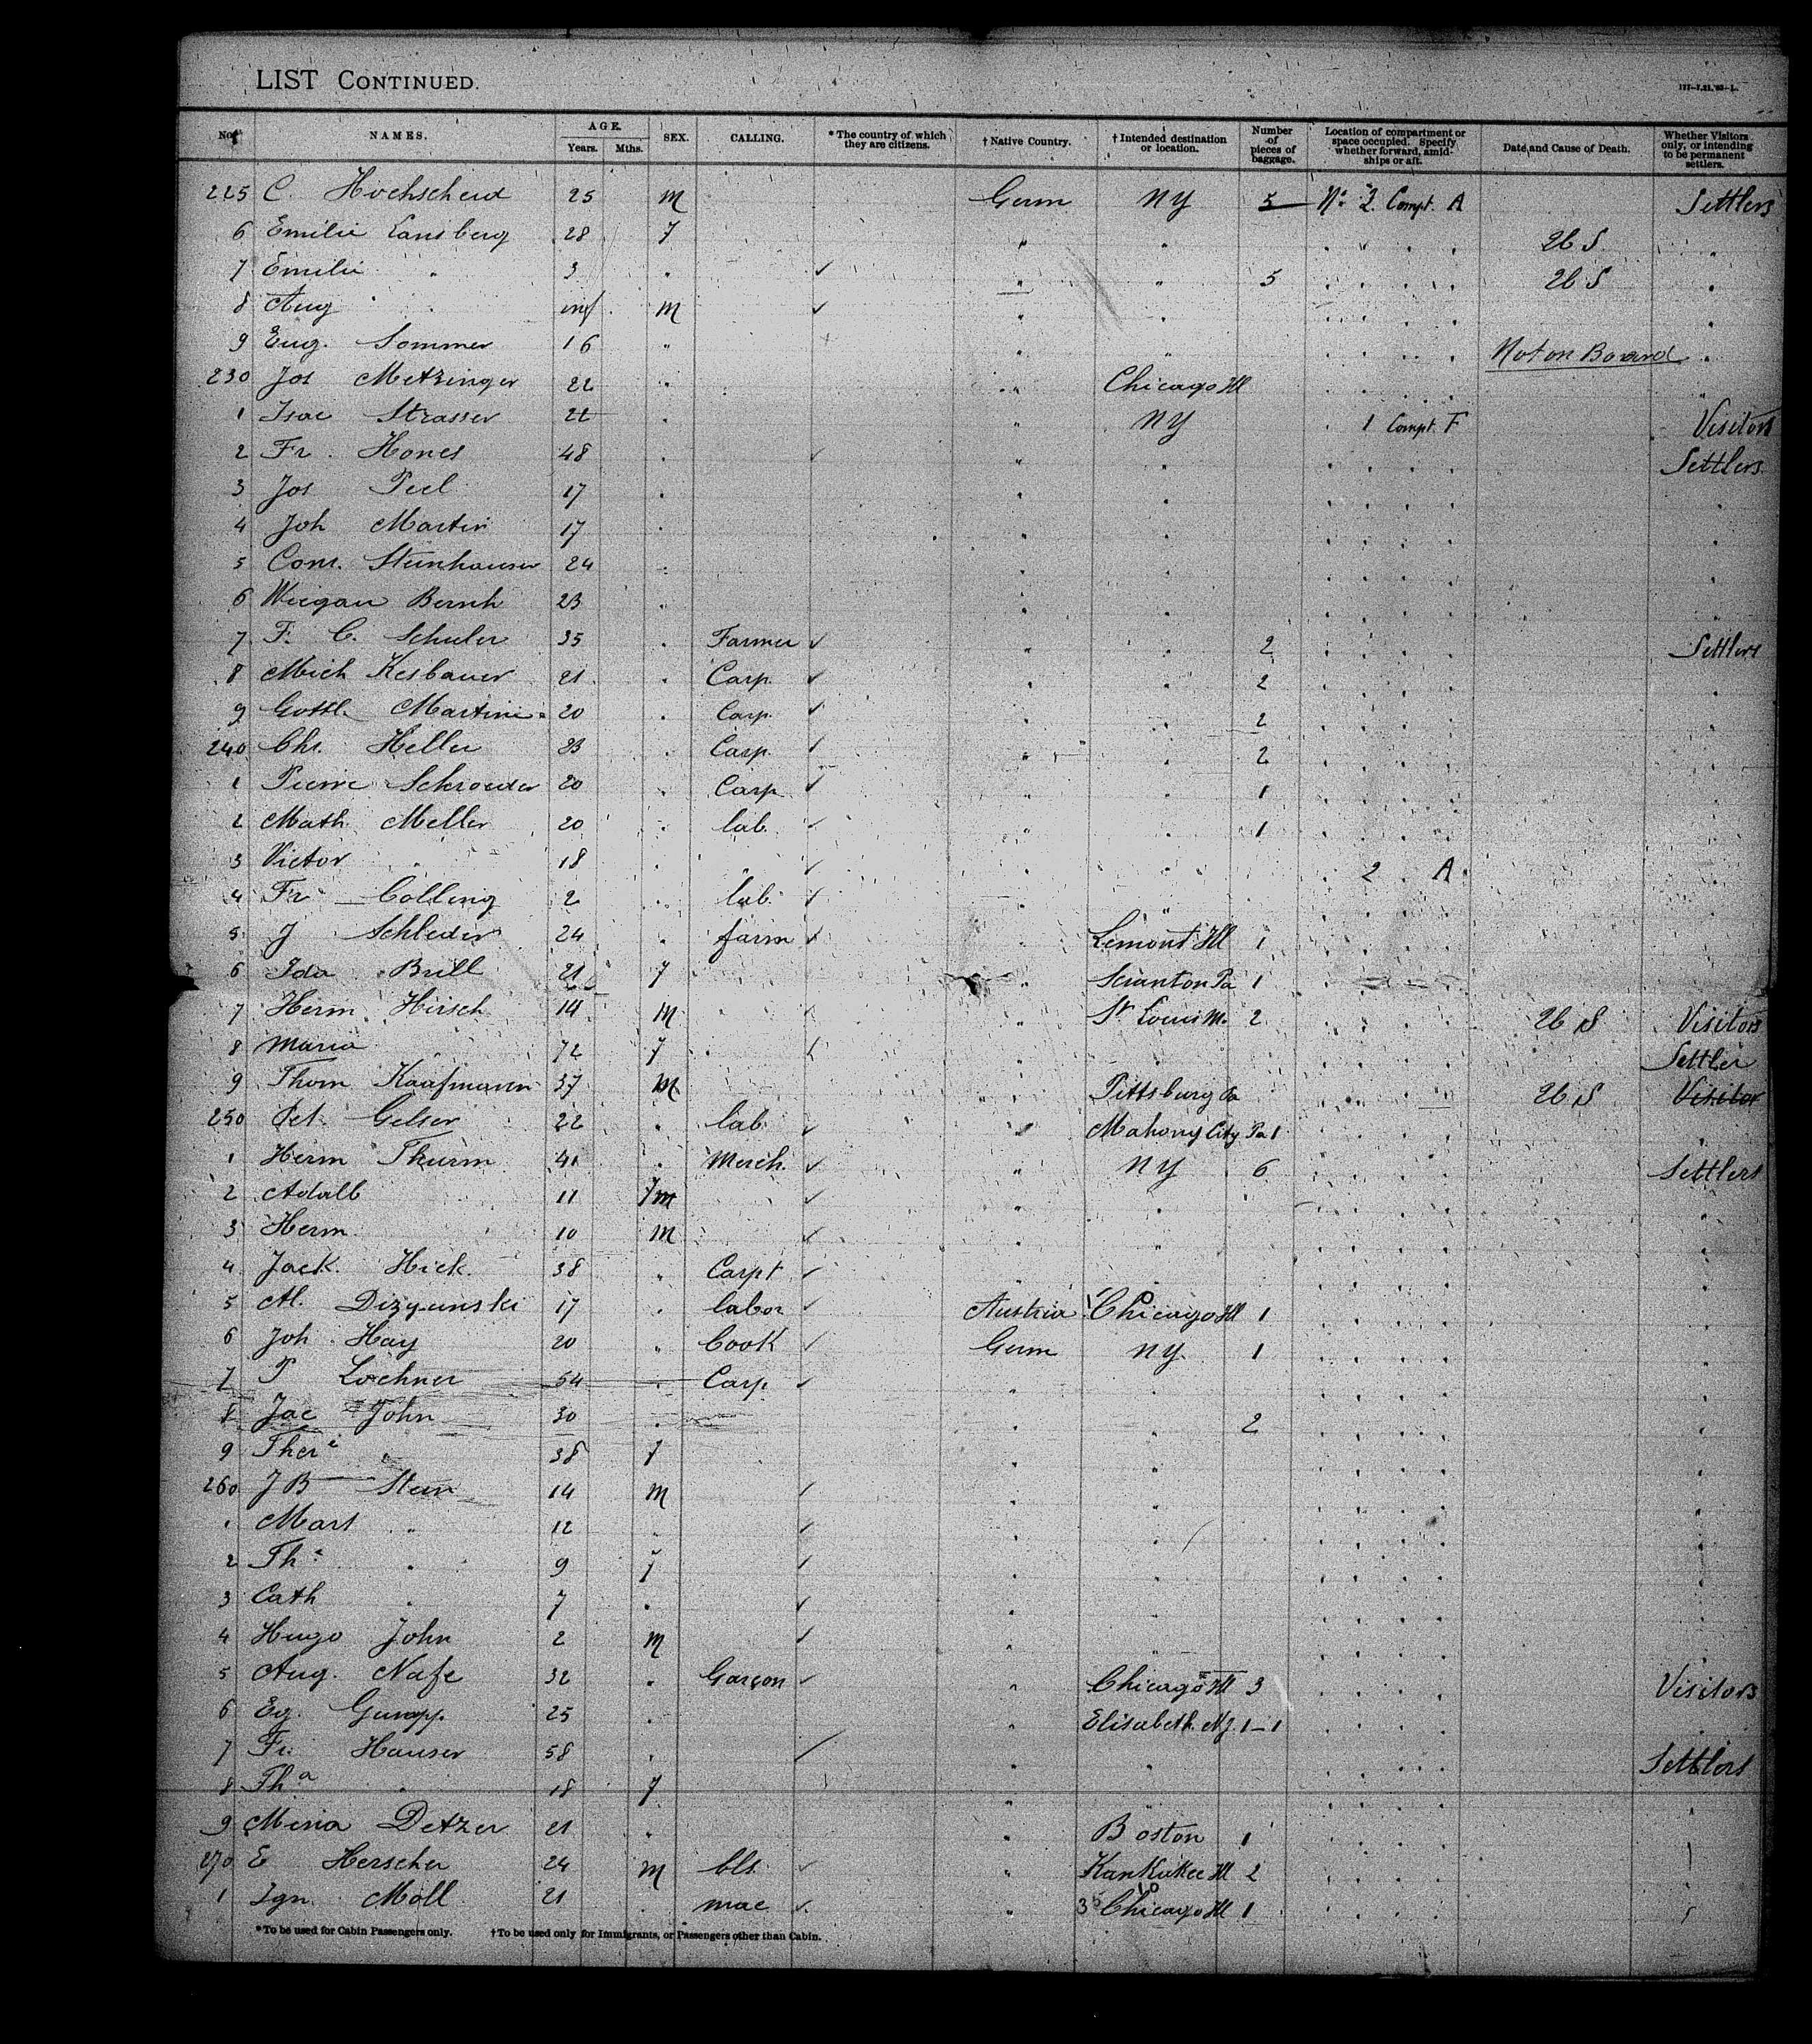 LIST CONTINUED.
No. NAMES. AGE. Years. Mths. SEX. CALLING. * The country of which they are citizens. † Native Country. † Intended destination or location. Number of pieces of baggage. Location of compartment or space occupied. Specify whether forward, amidships or aft. Date and Cause of Death. Whether Visitors only, or intending to be permanent settlers.
225 C. Hochscheid 25 m Germ NY 5 No 2 Compt. A Settlers
6 Emilie Lansberg 28 f " " 26 S "
7 Emilie " 3 " ✓ " " 5 26 S "
8 Aug " inf m ✓ " " "
9 Eug. Sommer 16 " " " Not on Board "
230 Jos Metzinger 22 " " Chicago Ill
1 Isac Strasser 22 " " NY 1 Compt. F Visitors
2 Fr. Hones 48 " ✓ " " Settlers
3 Jos Peel 17 " " " "
4 Joh Martin 17 " " " "
5 Cons. Steinhauser 24 " " " "
6 Wiegau Bernh 23 " " " "
7 F. C. Schuler 35 " Farmer ✓ " " 2 Settlers
8 Mich Kesbauer 21 " Carp. ✓ " " 2 "
9 Gottl. Martini 20 " Carp. ✓ " " 2 "
240 Chr. Heller 23 " Carp. ✓ " " 2 "
1 Pierre Schroeder 20 " Carp ✓ " " 1 "
2 Math Meller 20 " lab. ✓ " " 1 "
3 Victor " 18 " ✓ " " 2 A
4 Fr Colling 2 " lab. ✓ " "
5 J Schleder 24 " farm ✓ " Lemont Ill 1
6 Ida Brill 21 f " Scranton Pa 1
7 Herm Hirsch 14 m " St Louis M. 2 26 S Visitors
8 Maria " 72 f " Settler
9 Thom Kaufmann 37 m " Pittsburg Pa 26 S Visitor
250 Pet. Gelser 22 " lab. ✓ " Mahony City Pa 1 "
1 Herm Thurm 41 " Merch. ✓ " NY 6 Settlers
2 Adalb 11 m ✓ " " "
3 Herm 10 m ✓ " " "
4 Jack. Hick. 38 " Carpt ✓ " " "
5 Al. Dizyunski 17 " labor ✓ Austria Chicago Ill 1 "
6 Joh Hay 20 " Cook ✓ Germ NY. 1 "
7 P Lochner 54 " Carp ✓ " " "
8 Jac John 30 " " " 2 "
9 Ther e " 38 f " " "
260 J B Stein 14 m ✓ " " "
1 Mart " 12 " ✓ " " "
2 Th e " 9 f ✓ " " "
3 Cath " 7 " ✓ " " "
4 Hugo John 2 m ✓ " "
5 Aug. Nafe 32 " Garçon ✓ " Chicago Ill 3 Visitors
6 Eg. Gumpp. 25 " " Elisabeth. NJ. 1-1 "
7 Fr. Hauser 58 " " " Settlers
8 Th a " 18 f " "
9 Mina Detzer 21 " " Boston 1 "
270 E Herscher 24 m bls. ✓ " Kankakee Ill 2 "
1 Ign. Moll 21 mac ✓ " Chicago Ill 1 "
* To be used for Cabin Passengers only. † To be used only for Immigrants, or Passengers other than Cabin.